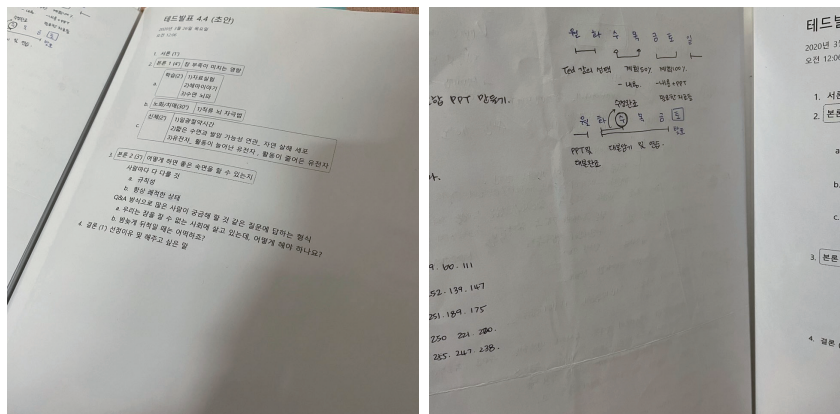 테드발표 4.4 (초안)
오전 12:06
1. 서론 (1')
2. 본론 1 (4') 잠 부족이 미치는 영향
a. 학습(2') 1)자료실험
2)해마이야기
3)수면 뇌파
b. 노화/치매(30") 1)직류 뇌 자극법
c. 신체(2') 1)일광절약시간
2)짧은 수면과 발암 가능성 연관_ 자연 살해 세포
3)유전자_ 활동이 늘어난 유전자, 활동이 줄어든 유전자
3. 본론 2 (3') 어떻게 하면 좋은 숙면을 할 수 있는지
사람마다 다 다를 것
a. 규칙성
b. 항상 쾌적한 상태
Q&A 방식으로 많은 사람이 궁금해 할 것 같은 질문에 답하는 형식
a. 우리는 잠을 잘 수 없는 사회에 살고 있는데, 어떻게 해야 하나요?
b. 밤늦게 뒤척일 때는 어떡하죠?
4. 결론 (1') 선정이유 및 해주고 싶은 말
월 화 수 목 금 토 일
Ted 강의 선택 계획50% 계획100%
- 내용, -내용+PPT
수정완료
월 화 수 목 금 토
PPT 및
대본완료
대본암기 및 연습.
발표
PPT 만들기.
9. 60. 111
252. 139. 147
251. 189. 175
250 221
255. 247. 238.
테드발
2020년 3
오전 12:06
1. 서론
2. 본론
a
b.
c.
3. 본론
4. 결론